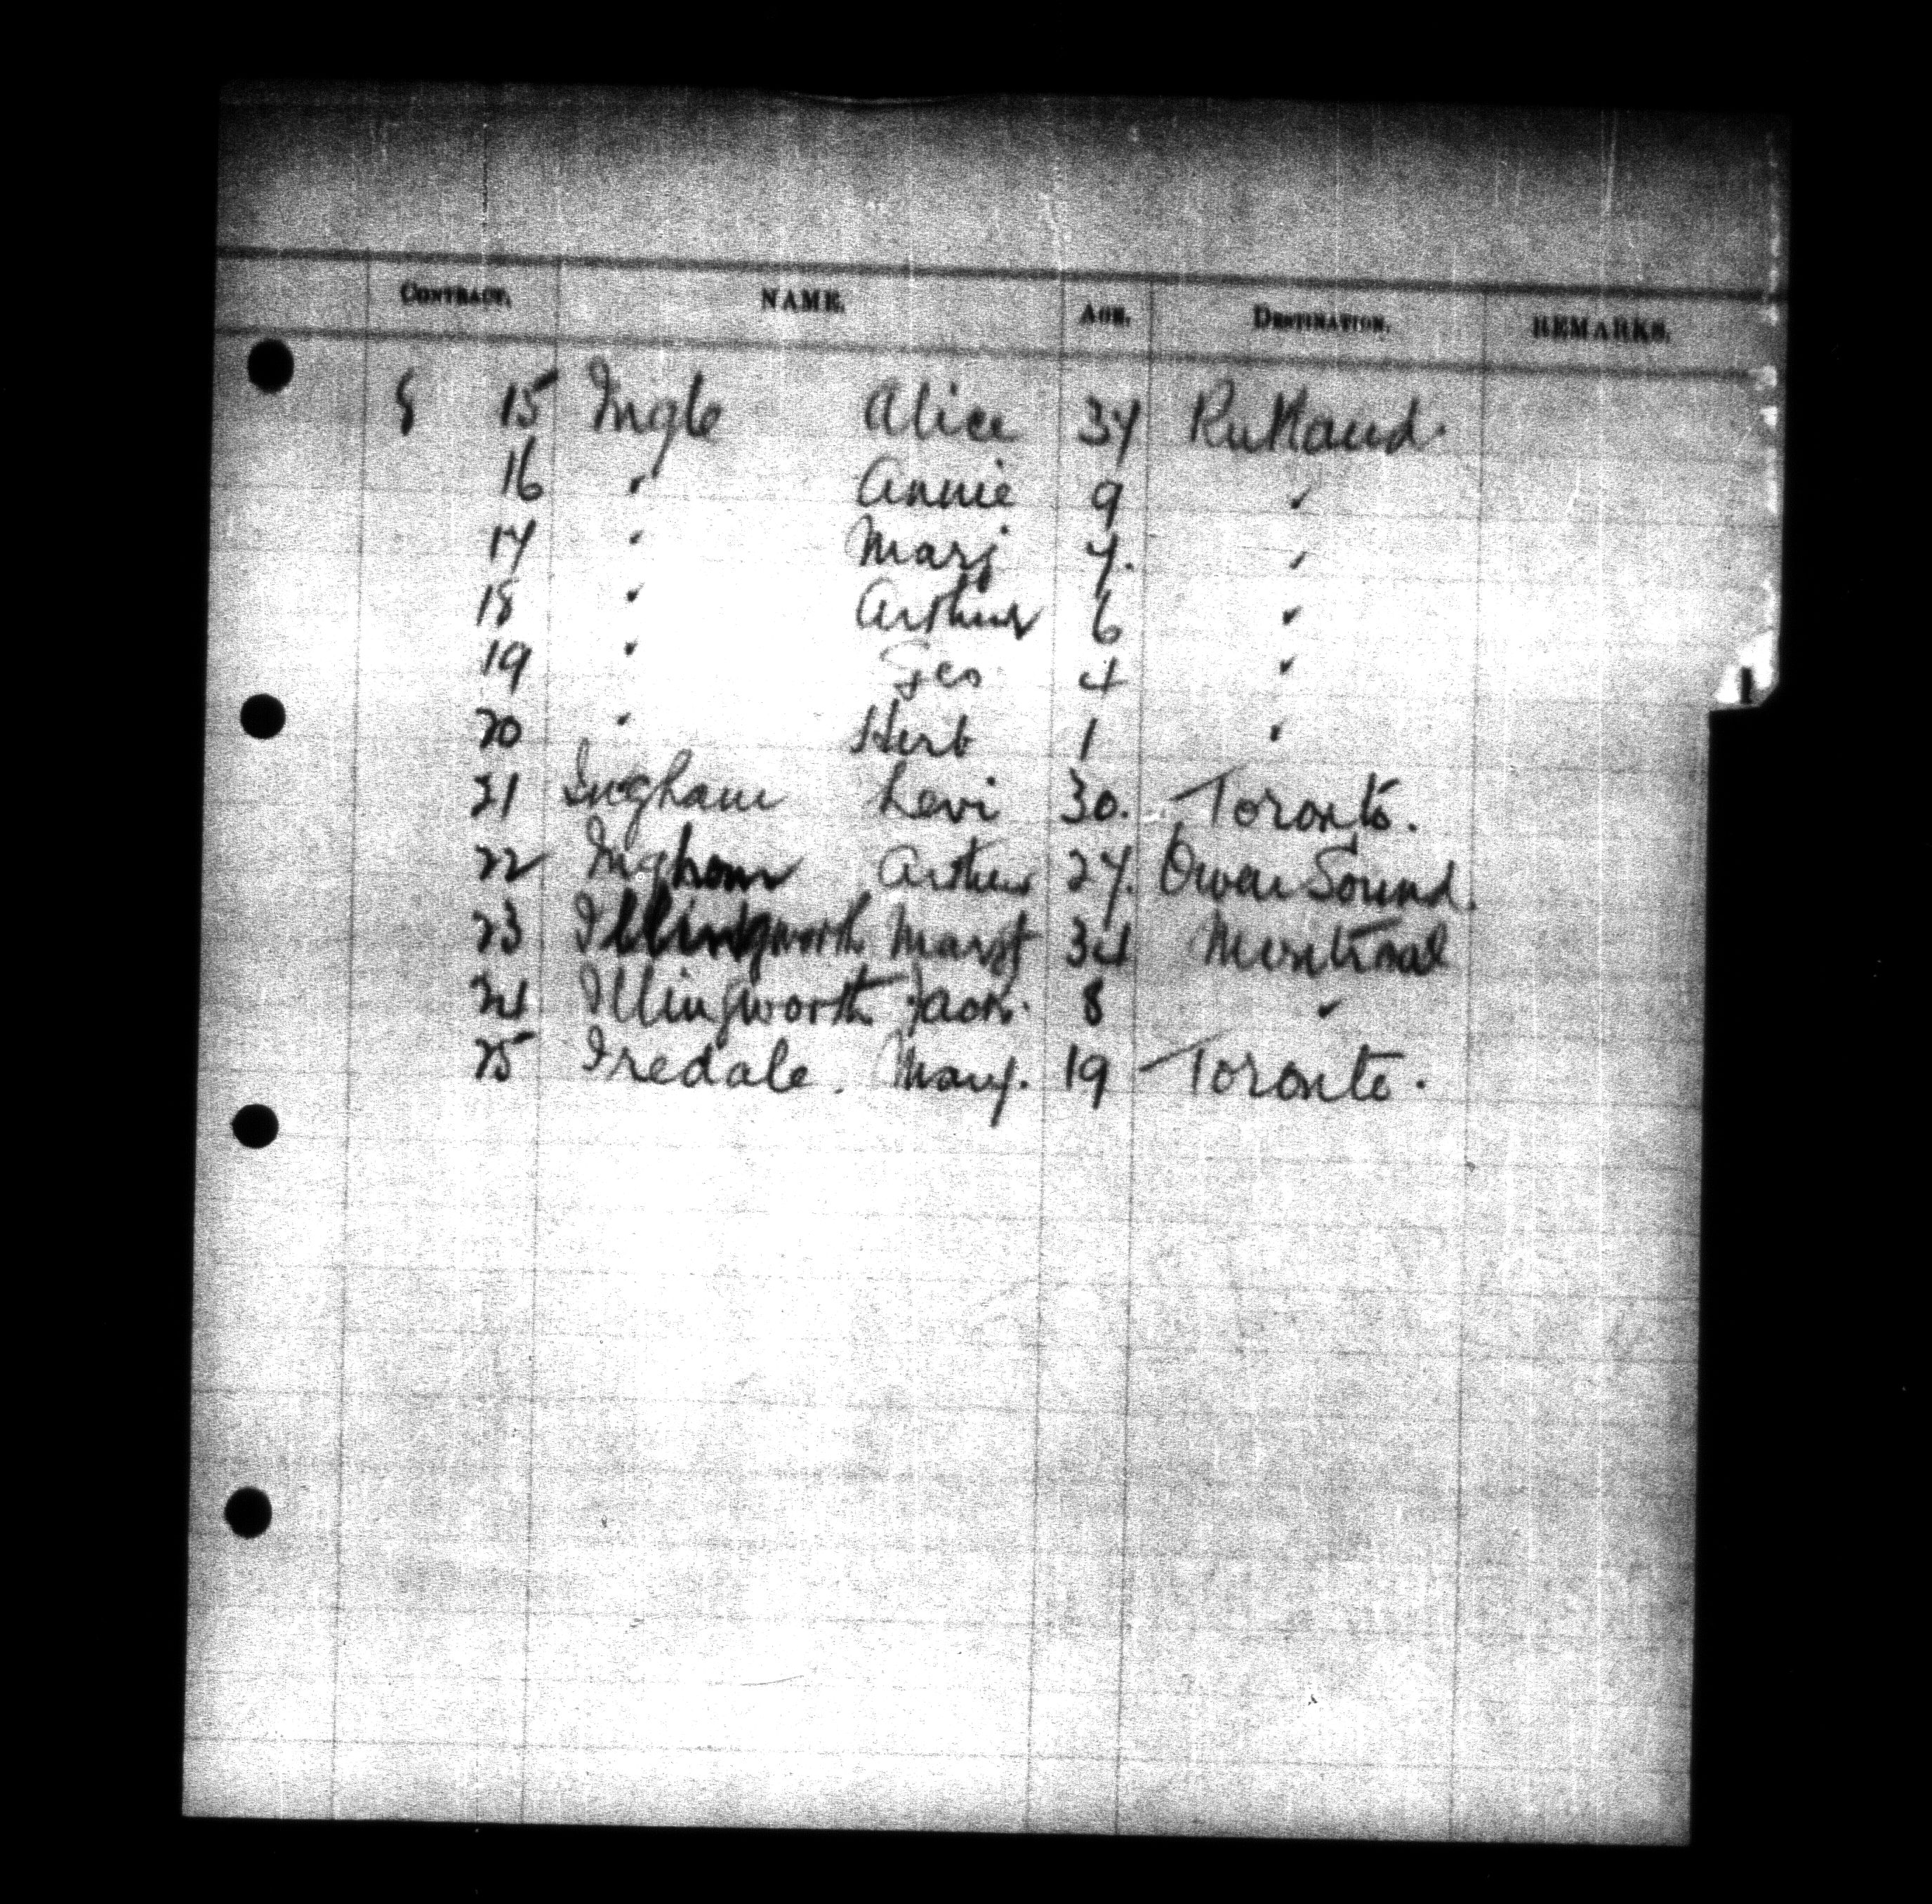 CONTRACT. NAME. AGE. DESTINATION. REMARKS.
15 Ingle Alice 37 Rutland.
16 " Annie 9 "
17 " Marj 7. "
18 " Arthur 6 "
19 " Geo 4 "
20 " Herb 1 "
21 Ingham Levi 30. Toronto.
22 Ingham Arthur 27. Owen Sound.
23 Illingworth Margt 34 Montreal
24 Illingworth Jack. 8 "
25 Iredale. Mary. 19 Toronto.
I